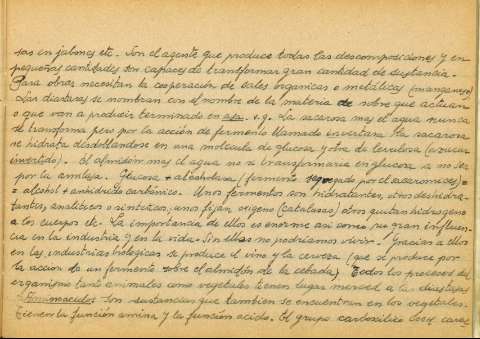 sas en jabones etc. Son el agente que produce todas las descomposiciones y en
pequeñas cantidades son capaces de transformar gran cantidad de sustancia.
Para obrar necesitan la cooperación de sales organicas o metálicas (manganeso)
Las diastasas se nombran con el nombre de la materia sobre que actúan
o que van a producir terminado en asa. v.g. La sacarosa mas el agua nunca
se transforma pero por la acción de fermento llamado invertasa la sacarosa
se hidrata desdoblandose en una molecula de glucosa y otra de levulosa (azucar
invertido). El almidon mas el agua no se transformaria en glucosa a no ser
por la amilasa. Glucosa + alcoholasa (fermento segregado por el sacaromices) =
= alcohol + anhidrido carbónico. Unos fermentos son hidratantes, otros deshidra-
tantes, analíticos o sintéticos, unos fijan oxigeno (catalasas) otros quitan hidrogeno
a los cuerpos etc. La importancia de ellos es enorme asi como su gran influen-
cia en la industria y en la vida. Sin ellas no podriamos vivir. Gracias a ellos
en las industrias biologicas se produce el vino y la cerveza (que se produce por
la accion de un fermento sobre el almidón de la cebada) Todos los procesos del
organismo tanto animales como vegetales tienen lugar merced a las diastasas
Aminoacidos Son sustancias que tambien se encuentran en los vegetales.
Tienen la función amina y la función acido. El grupo carboxilico